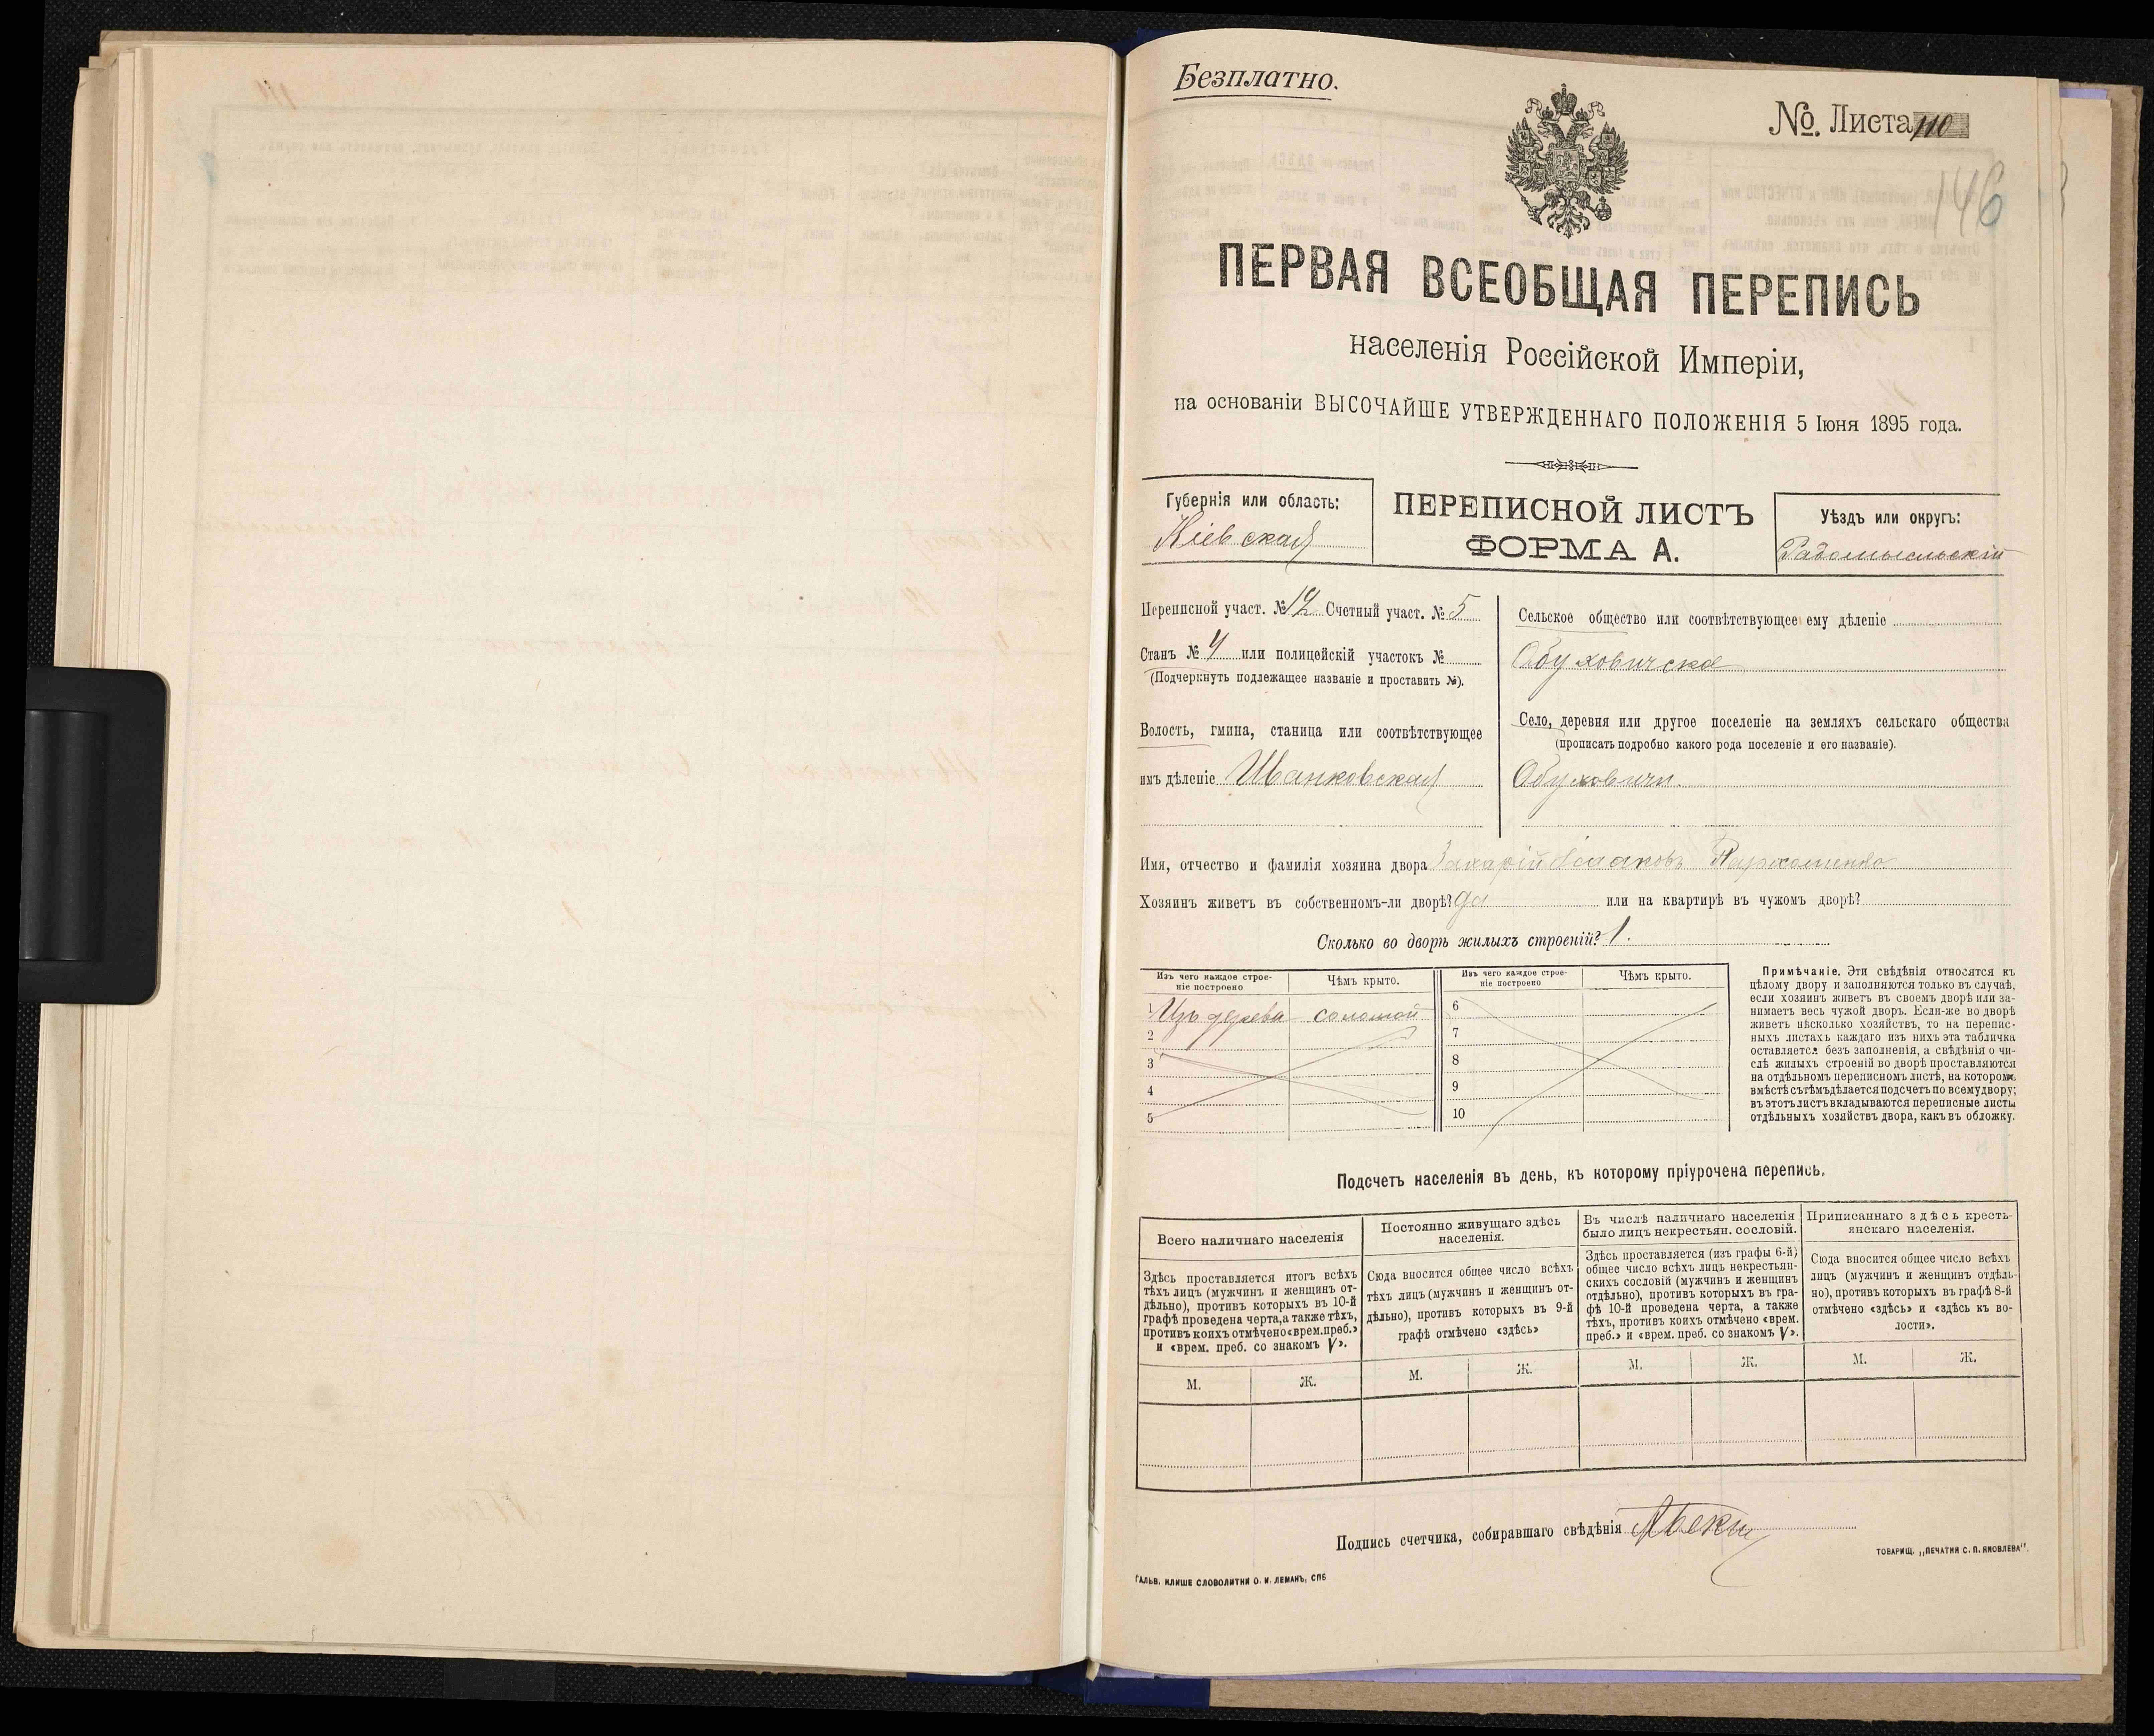 Безплатно.
№. Листа 110
146
ПЕРВАЯ ВСЕОБЩАЯ ПЕРЕПИСЬ
населенія Россійской Имперіи,
на основаніи ВЫСОЧАЙШЕ УТВЕРЖДЕННАГО ПОЛОЖЕНІЯ 5 Іюня 1895 года.
Губернія или область:
Кіевская
ПЕРЕПИСНОЙ ЛИСТЪ
ФОРМА А.
Уѣздъ или округъ:
Радомысльскій
Переписной участ. № 12 Счетный участ. № 5
Станъ № 4 или полицейскій участокъ №
(Подчеркнуть подлежащее названіе и проставить №).
Волость, гмина, станица или соотвѣтствующее
имъ дѣленіе Иванковская
Сельское общество или соотвѣтствующее ему дѣленіе
Обуховичское
Село, деревня или другое поселеніе на земляхъ сельскаго общества
(прописать подробно какого рода поселеніе и его названіе).
Обуховичи.
Имя, отчество и фамилія хозяина двора Захарій Исааковъ Пархоменко
Хозяинъ живетъ въ собственномъ-ли дворѣ? да или на квартирѣ въ чужомъ дворѣ?
Сколько во дворѣ жилыхъ строеній? 1.
Изъ чего каждое строе-
ніе построено
Чѣмъ крыто.
1 Изъ дерева соломой
2
3
4
5
Изъ чего каждое строе-
ніе построено
Чѣмъ крыто.
6
7
8
9
10
Примѣчаніе. Эти свѣдѣнія относятся къ
цѣлому двору и заполняются только въ случаѣ,
если хозяинъ живетъ въ своемъ дворѣ или за-
нимаетъ весь чужой дворъ. Если-же во дворѣ
живетъ нѣсколько хозяйствъ, то на перепис-
ныхъ листахъ каждаго изъ нихъ эта табличка
оставляется безъ заполненія, а свѣдѣнія о чи-
слѣ жилыхъ строеній во дворѣ проставляются
на отдѣльномъ переписномъ листѣ, на которомъ
вмѣстѣ съ тѣмъ дѣлается подсчетъ по всему двору;
въ этотъ листъ вкладываются переписные листы
отдѣльныхъ хозяйствъ двора, какъ въ обложку.
Подсчетъ населенія въ день, къ которому пріурочена перепись.
Всего наличнаго населенія
Здѣсь проставляется итогъ всѣхъ
тѣхъ лицъ (мужчинъ и женщинъ от-
дѣльно), противъ которыхъ въ 10-й
графѣ проведена черта, а также тѣхъ,
противъ коихъ отмѣчено «врем. преб.»
и «врем. преб. со знакомъ V».
М. Ж.
Постоянно живущаго здѣсь
населенія.
Сюда вносится общее число всѣхъ
тѣхъ лицъ (мужчинъ и женщинъ от-
дѣльно), противъ которыхъ въ 9-й
графѣ отмѣчено «здѣсь»
М. Ж.
Въ числѣ наличнаго населенія
было лицъ некрестьян. сословій.
Здѣсь проставляется (изъ графы 6-й)
общее число всѣхъ лицъ некрестьян-
скихъ сословій (мужчинъ и женщинъ
отдѣльно), противъ которыхъ въ гра-
фѣ 10-й проведена черта, а также
тѣхъ, противъ коихъ отмѣчено «врем.
преб.» и «врем. преб. со знакомъ V».
М. Ж.
Приписаннаго здѣсь кресть-
янскаго населенія.
Сюда вносится общее число всѣхъ
лицъ (мужчинъ и женщинъ отдѣль-
но), противъ которыхъ въ графѣ 8-й
отмѣчено «здѣсь» и «здѣсь къ во-
лости».
М. Ж.
Подпись счетчика, собиравшаго свѣдѣнія
ТОВАРИЩ. „ПЕЧАТНИ С. П. ЯКОВЛЕВА".
ГАЛЬВ. КЛИШЕ СЛОВОЛИТНИ О. И. ЛЕМАНЪ, СПБ